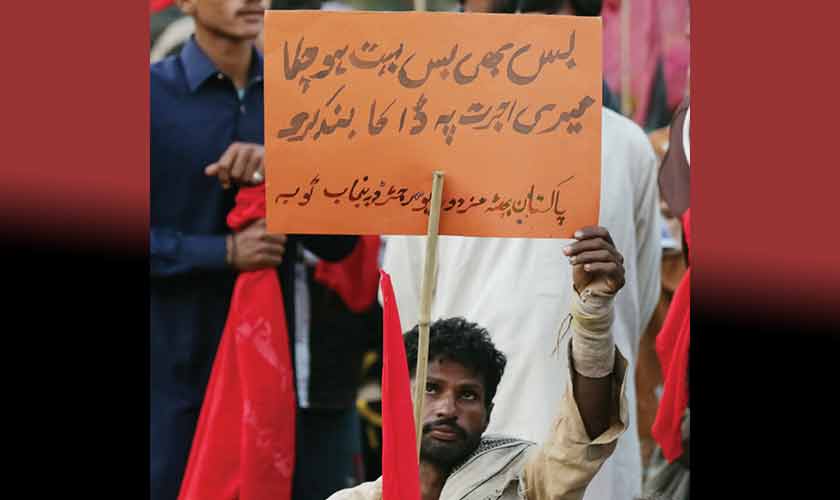 بس بھئی بس بہت ہو چکا
میری اجرت پہ ڈاکا بند کرو
پاکستان بھٹہ مزدور یونین رجسٹرڈ پنجاب ٹوبہ